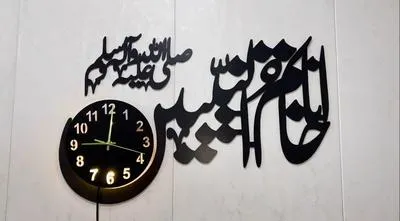 خاتم النبیین
صلی اللہ علیہ وآلہ وسلم
12
11 1
10 2
9 3
8 4
7 5
6